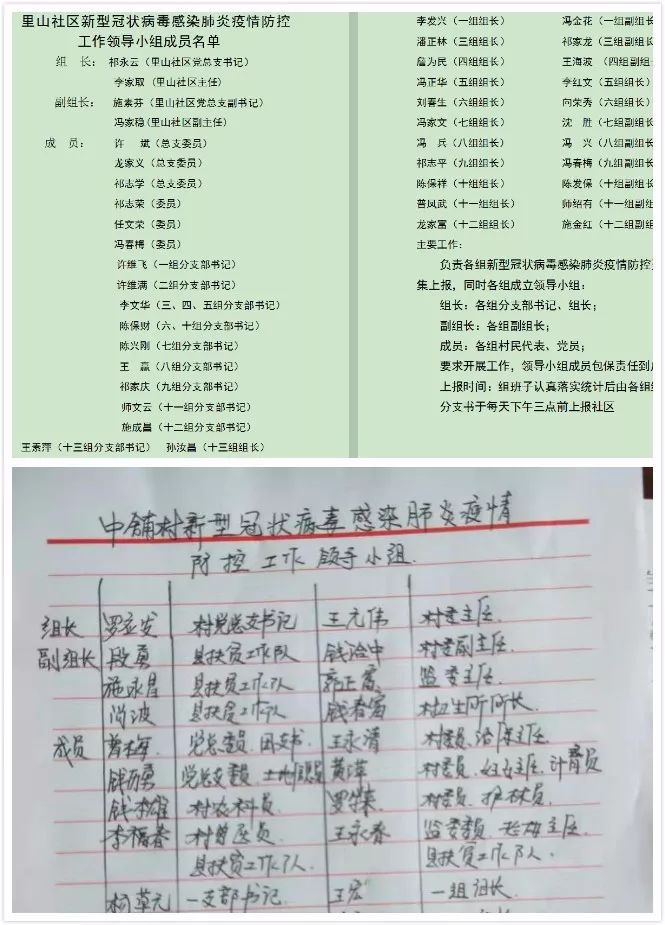 里山社区新型冠状病毒感染肺炎疫情防控
工作领导小组成员名单
组 长： 祁永云（里山社区党总支书记）
李家取（里山社区主任）
副组长： 施素芬（里山社区党总支副书记）
冯家稳(里山社区副主任)
成 员： 许 斌（总支委员）
龙家义（总支委员）
祁志学（总支委员）
祁志荣（委员）
任文荣（委员）
冯春梅（委员）
许维飞（一组分支部书记）
许维满（二组分支部书记）
李文华（三、四、五组分支部书记）
陈保财（六、十组分支部书记）
陈兴刚（七组分支部书记）
王 赢（八组分支部书记）
祁家庆（九组分支部书记）
师文云（十一组分支部书记）
施成昌（十二组分支部书记）
王素萍（十三组分支部书记） 孙汝昌（十三组组长）
李发兴（一组组长） 冯金花（一组副组长
潘正林（三组组长） 祁家龙（三组副组长
詹为民（四组组长） 王海波 （四组副组长
冯正华（五组组长） 李红文（五组组长）
刘春生（六组组长） 向荣秀（六组组长）
冯家文（七组组长） 沈 胜（七组副组长
冯 兵（八组组长） 冯 兴（八组副组长
祁志平（九组组长） 冯春梅（九组副组长
陈保祥（十组组长） 陈发保（十组副组长
普凤武（十一组组长） 师绍有（十一组副组
龙家富（十二组组长） 施金红（十二组副组
主要工作：
负责各组新型冠状病毒感染肺炎疫情防控
集上报，同时各组成立领导小组：
组长：各组分支部书记、组长；
副组长：各组副组长；
成员：各组村民代表、党员；
要求开展工作，领导小组成员包保责任到
上报时间：组班子认真落实统计后由各组
分支书于每天下午三点前上报社区
中铺村新型冠状病毒感染肺炎疫情
防控工作领导小组
组长 罗立发 村党总支书记 王元伟 村委主任
副组长 段勇 县扶贫工作队 钱治中 村委副主任
施永昌 县扶贫工作队 监委主任
尚波 县扶贫工作队 钱春富 村卫生所所长
成员 党总支委员、团支书 王永清 村委员、治保主任
党总支委员、 黄萍 村委员、妇女主任、计育员
钱 村农科员 罗 村委员、护林员
李福春 村兽医员 王永春 监委委员、老协主任
县扶贫工作队 县扶贫工作队
柯草元 一支部书记 王宏 一组组长